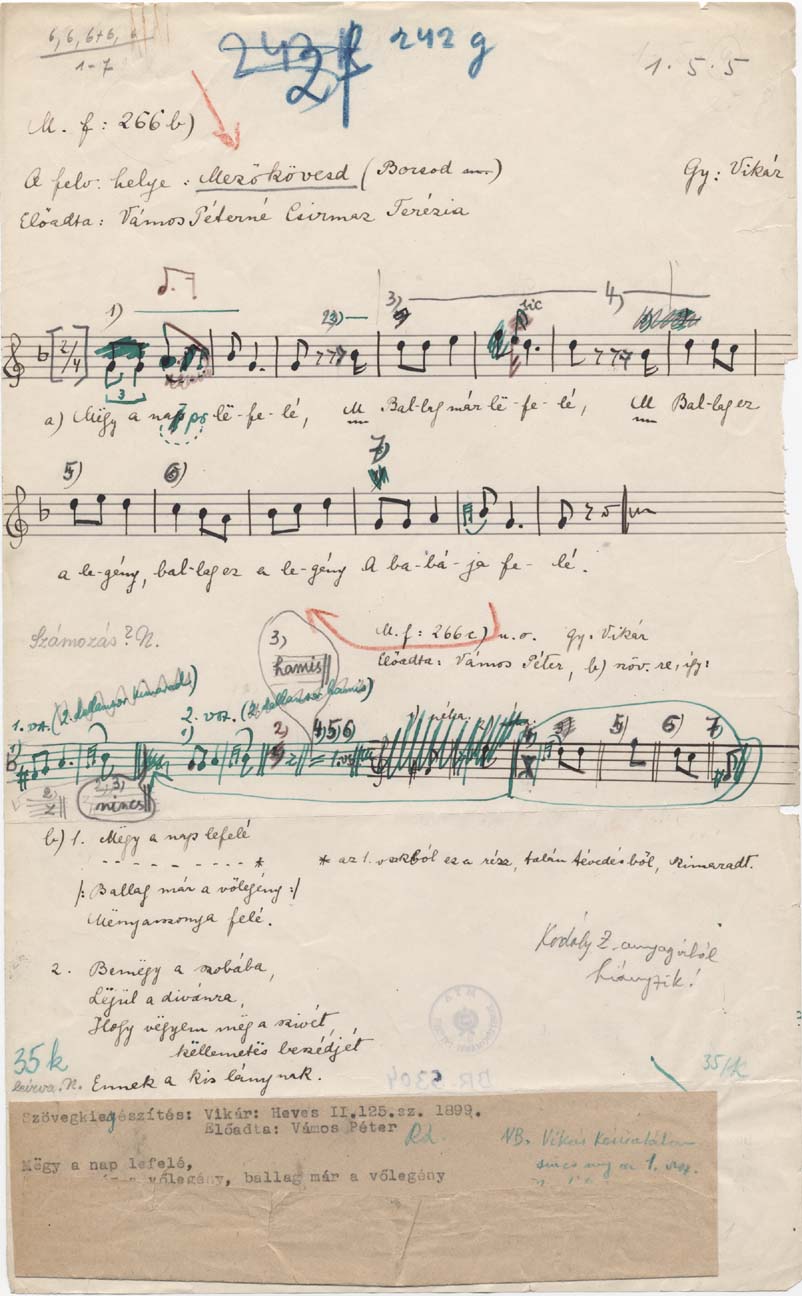 6, 6, 6+6, 6
1-7
242 g
1 . 5 . 5
M. f : 266 b)
A felv. helye : Mezőkövesd (Borsod vm.)
Gy: Vikár
Előadta: Vámos Péterné Csirmaz Terézia
1)
3)
4)
sic
[2/4]
3
a) Mëgy a nap lë-fe-lé, M Bal-lag már lë-fe-lé, M Bal-lag ez
5) 6) 7)
a le-gény, bal-lag ez a le-gény A ba-bá-ja fe-lé.
Számozás? N.
3)
hamis
M. f : 266 c) u. o. Gy: Vikár
Előadta: Vámos Péter, b) növ. re, így:
1. vsz. (2. dallamsor kimarad)
2. vsz. (2. dallamsor hamis)
1) 1) 2) 4) 5) 6) 5) 6) 7)
2) 3)
nincs
b) 1. Mëgy a nap lefelé
- - - - - - - - - *
* az 1. vszkból ez a rész, talán tévedésből, kimaradt.
/: Ballag már a vőlegény :/
Mënyasszonya felé.
Kodály Z. anyagából
hiányzik!
2. Bemëgy a szobába,
Lëjül a divánra,
Hogy vëgyem mëg a szivét,
këllemetës beszédjét
Ennek a kis lánynak.
35 k
leírva. N.
35/k
BR 5304
Szövegkiegészítés: Vikár: Heves II.125.sz. 1899.
Előadta: Vámos Péter
Mëgy a nap lefelé,
vőlegény, ballag már a vőlegény
NB. Vikár
sincs meg az 1. vsz.